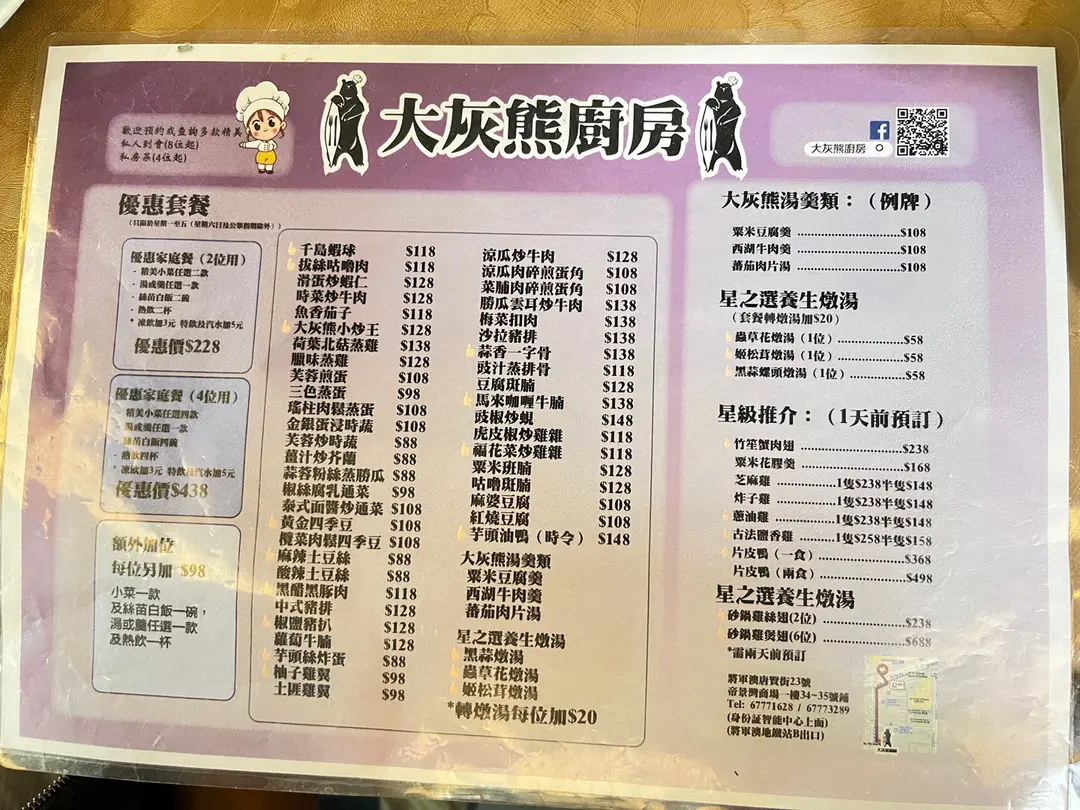 歡迎預約或查詢多款精美
私人到會(8位起)
私房菜(4位起)
大灰熊廚房
大灰熊廚房
優惠套餐
（只限於星期一至五（星期六日及公眾假期除外））
優惠家庭餐（2位用）
- 精美小菜任選二款
- 湯或羹任選一款
- 絲苗白飯二碗
- 熱飲二杯
* 凍飲加3元 特飲及汽水加5元
優惠價$228
優惠家庭餐（4位用）
- 精美小菜任選四款
- 湯或羹任選一款
- 絲苗白飯四碗
- 熱飲四杯
* 凍飲加3元 特飲及汽水加5元
優惠價$438
額外加位
每位另加 $98
小菜一款
及絲苗白飯一碗，
湯或羹任選一款
及熱飲一杯
千島蝦球 $118
拔絲咕嚕肉 $118
滑蛋炒蝦仁 $128
時菜炒牛肉 $128
魚香茄子 $118
大灰熊小炒王 $128
荷葉北菇蒸雞 $138
臘味蒸雞 $128
芙蓉煎蛋 $108
三色蒸蛋 $98
瑤柱肉鬆蒸蛋 $108
金銀蛋浸時蔬 $108
芙蓉炒時蔬 $88
薑汁炒芥蘭 $88
蒜蓉粉絲蒸勝瓜 $88
椒絲腐乳通菜 $98
泰式面醬炒通菜 $108
黃金四季豆 $108
欖菜肉鬆四季豆 $108
麻辣土豆絲 $88
酸辣土豆絲 $88
黑醋黑豚肉 $118
中式豬排 $128
椒鹽豬扒 $128
蘿蔔牛腩 $128
芋頭絲炸蛋 $88
柚子雞翼 $98
土匪雞翼 $98
涼瓜炒牛肉 $128
涼瓜肉碎煎蛋角 $108
菜脯肉碎煎蛋角 $108
勝瓜雲耳炒牛肉 $138
梅菜扣肉 $138
沙拉豬排 $138
蒜香一字骨 $138
豉汁蒸排骨 $118
豆腐斑腩 $128
馬來咖喱牛腩 $138
豉椒炒蜆 $148
虎皮椒炒雞雜 $118
福花菜炒雞雜 $118
粟米班腩 $128
咕嚕斑腩 $128
麻婆豆腐 $108
紅燒豆腐 $108
芋頭油鴨（時令） $148
大灰熊湯羹類
粟米豆腐羹
西湖牛肉羹
蕃茄肉片湯
星之選養生燉湯
黑蒜燉湯
蟲草花燉湯
姬松茸燉湯
*轉燉湯每位加$20
大灰熊湯羹類：（例牌）
粟米豆腐羹 ........................$108
西湖牛肉羹 ........................$108
蕃茄肉片湯 ........................$108
星之選養生燉湯
（套餐轉燉湯加$20）
蟲草花燉湯（1位）................$58
姬松茸燉湯（1位）................$58
黑蒜螺頭燉湯（1位）..............$58
星級推介：（1天前預訂）
竹笙蟹肉翅 ........................$238
粟米花膠羹 ........................$168
芝麻雞 ..............1隻$238半隻$148
炸子雞 ..............1隻$238半隻$148
蔥油雞 ..............1隻$238半隻$148
古法鹽香雞 ..........1隻$258半隻$158
片皮鴨（一食）....................$368
片皮鴨（兩食）....................$498
星之選養生燉湯
砂鍋雞絲翅(2位) ..................$238
砂鍋雞煲翅(6位) ..................$688
*需兩天前預訂
將軍澳唐賢街23號
帝景灣商場一樓34~35號鋪
Tel: 67771628 / 67773289
(身份証智能中心上面)
(將軍澳地鐵站B出口)